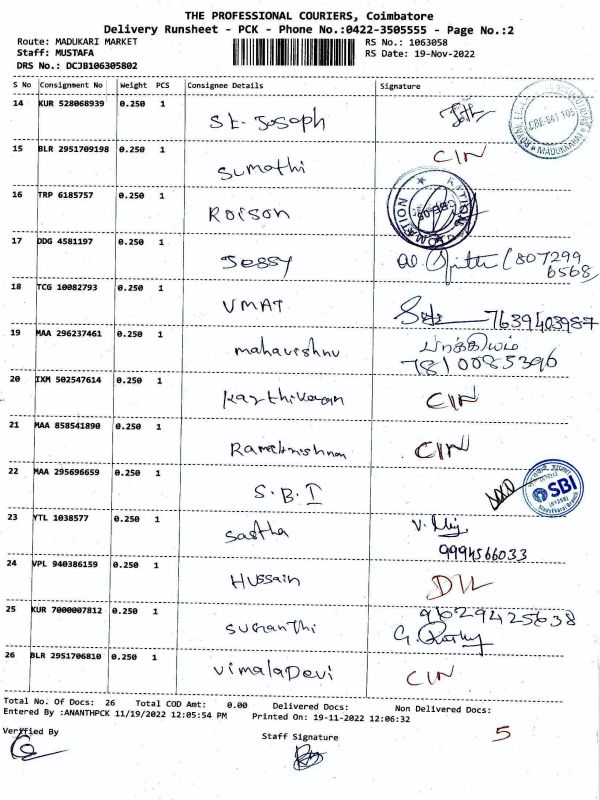 THE PROFESSIONAL COURIERS, Coimbatore
Delivery Runsheet - PCK - Phone No.:0422-3505555 - Page No.:2
Route: MADUKARI MARKET RS No.: 1063058
Staff: MUSTAFA RS Date: 19-Nov-2022
DRS No.: DCJB106305802
S No Consignment No Weight PCS Consignee Details Signature
14 KUR 528068939 0.250 1 St. Joseph
15 BLR 2951709198 0.250 1 Sumathi CIN
16 TRP 6185757 0.250 1 Roison
17 DDG 4581197 0.250 1 Jessy (8072996568)
18 TCG 10082793 0.250 1 UMAT 7639403987
19 MAA 296237461 0.250 1 mahavishnu பாக்கியம்
7810085396
20 IXM 502547614 0.250 1 Karthikeyan CIN
21 MAA 858541890 0.250 1 Ramakrishnan CIN
22 MAA 295696659 0.250 1 S.B.I SBI
23 YTL 1038577 0.250 1 Sastha
9994566033
24 VPL 940386159 0.250 1 Hussain DIL
25 KUR 7000007812 0.250 1 Sumanthi 9629425638
26 BLR 2951706810 0.250 1 VimalaDevi CIN
Total No. Of Docs: 26 Total COD Amt: 0.00 Delivered Docs: Non Delivered Docs:
Entered By :ANANTHPCK 11/19/2022 12:05:54 PM Printed On: 19-11-2022 12:06:32
5
Verified By Staff Signature